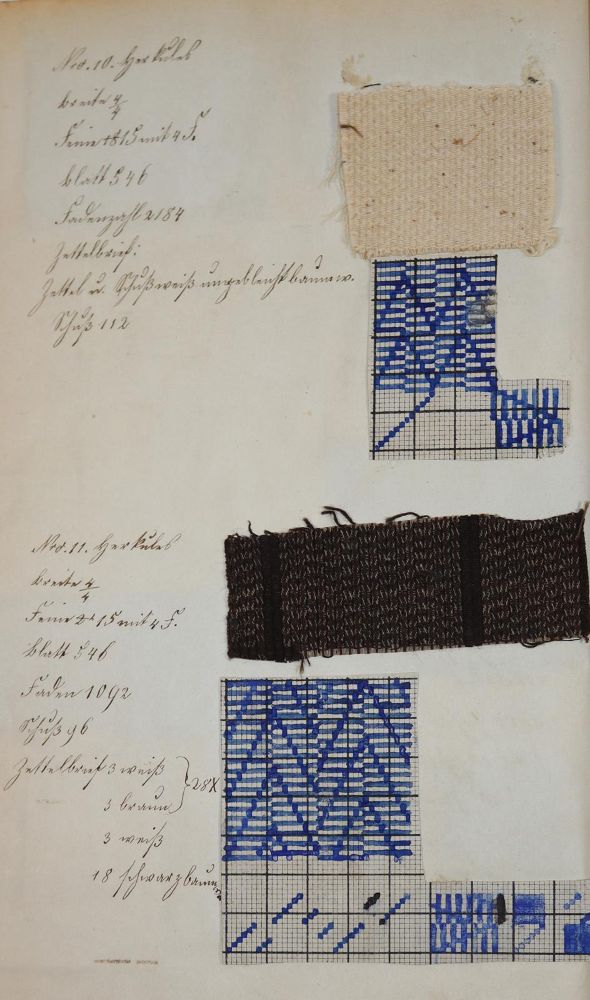 Nro. 10. Herkules
breite 4/4
Feine 15 mit 4 F.
blatt 546
Fadenzahl 2184
Zettelbrief:
Zettel u. Schuß weiß ungebleicht baumw.
Schuß 112
Nro. 11. Herkules
breite 4/4
Feine 15 mit 4 F.
blatt 546
Faden 1092
Schuß 96
Zettelbrief 3 weiß
3 braun } 28X
3 weiß
18 schwarz